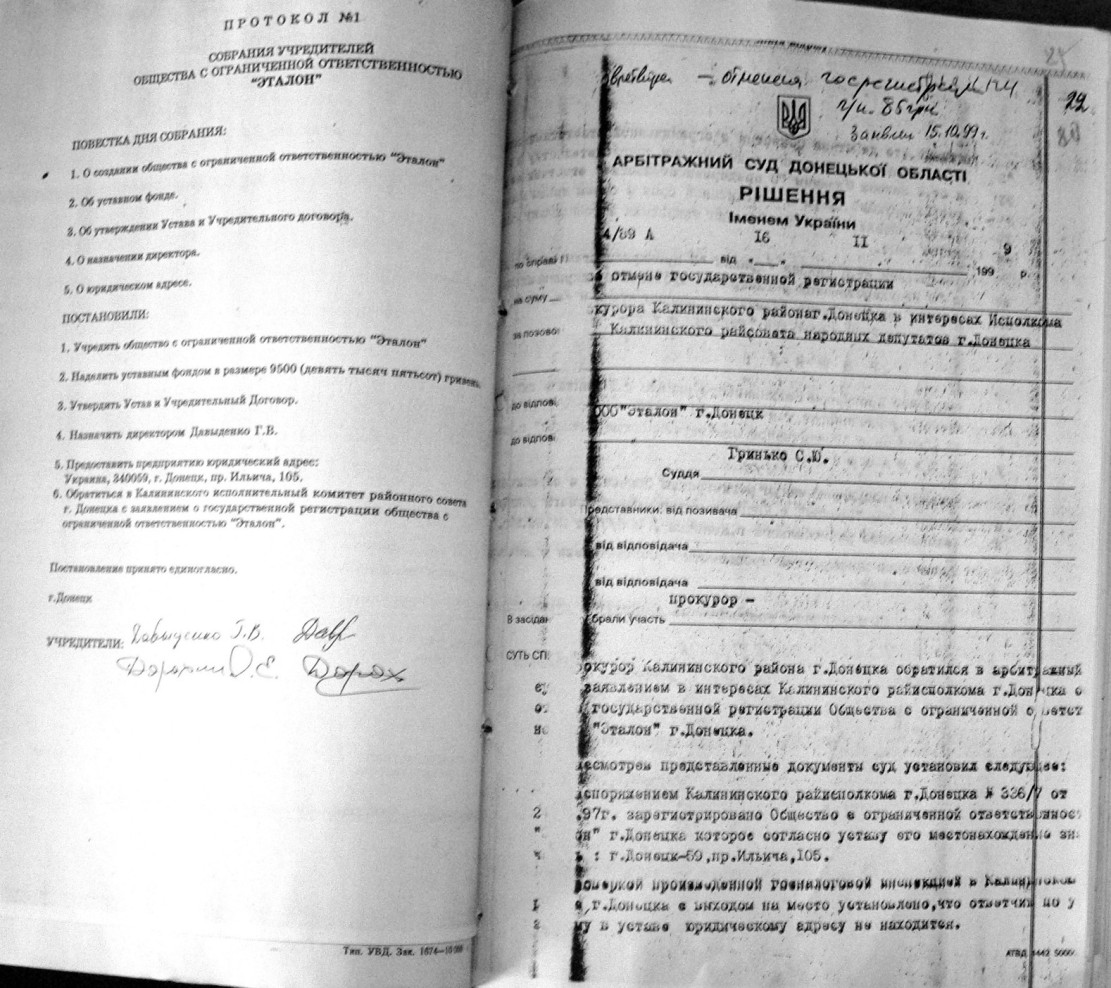 ПРОТОКОЛ №1
СОБРАНИЯ УЧРЕДИТЕЛЕЙ
ОБЩЕСТВА С ОГРАНИЧЕННОЙ ОТВЕТСТВЕННОСТЬЮ
"ЭТАЛОН"
ПОВЕСТКА ДНЯ СОБРАНИЯ:
1. О создании общества с ограниченной ответственностью "Эталон"
2. Об уставном фонде.
3. Об утверждении Устава и Учредительного договора.
4. О назначении директора.
5. О юридическом адресе.
ПОСТАНОВИЛИ:
1. Учредить общество с ограниченной ответственностью "Эталон"
2. Наделить уставным фондом в размере 9500 (девять тысяч пятьсот) гривень
3. Утвердить Устав и Учредительный Договор.
4. Назначить директором Давыденко Г.В.
5. Предоставить предприятию юридический адрес:
Украина, 340059, г. Донецк, пр. Ильича, 105.
6. Обратиться в Калининского исполнительный комитет районного совета
г. Донецка с заявлением о государственной регистрации общества с
ограниченной ответственностью "Эталон".
Постановление принято единогласно.
г.Донецк
УЧРЕДИТЕЛИ: Давыденко Г.В.
Тип. УВД. Зак. 1674—10
22
г/п. 85 грн
15.10.99г.
АРБІТРАЖНИЙ СУД ДОНЕЦЬКОЇ ОБЛАСТІ
РІШЕННЯ
Іменем України
4/89 А 16 11 9
по справі від " " 199 р.
отмене государственной регистрации
на суму
курора Калининского районаг.Донецка в интересах Исполкома
за позовом Калининского райсовета народных депутатов г.Донецка
до відпові
ООО"Эталон" г.Донецк
до відпові
Гринько С.Ю.
Суддя
Представники: від позивача
від відповідача
від відповідача
прокурор –
В засідан брали участь
СУТЬ СП
окурор Калининского района г.Донецка обратился в арбитражный
заявлением в интересах Калининского райисполкома г.Донецка о
государственной регистрации Общества с ограниченной ответст
"Эталон" г.Донецка.
ссмотрев представленные документы суд установил следующее:
споряжением Калининского райисполкома г.Донецка № 336/7 от
2 .97г. зарегистрировано Общество с ограниченной ответственност
" он" г.Донецка которое согласно уставу его местонахождение зн
: г.Донецк-59,пр.Ильича,105.
оверкой произведенной госналоговой инспекцией в Калининском
г.Донецка с выходом на место установлено,что ответчик по у
му в уставе юридическому адресу не находится.
АТВД 1442 5000